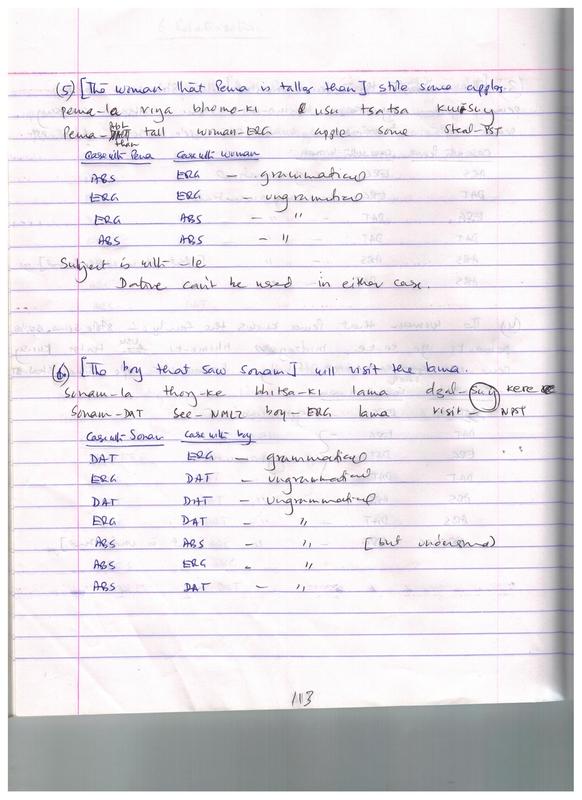 (5) [The woman that Pema is taller than] stole some apples.
Pema-la riya bhomo-ki usu tsatsa kuisuŋ
Pema-ABL tall woman-ERG apple some steal-PST
than
Case with Pema Case with woman
ABS ERG - grammatical
ERG ERG - ungrammatical
ERG ABS - "
ABS ABS - "
Subject is with -le
Dative can't be used in either case.
(6) [The boy that saw Sonam] will visit the lama.
Sonam-la thoŋ-ke bhitsa-ki lama dzal-suŋ kere
Sonam-DAT see-NMLZ boy-ERG lama visit- NPST
Case with Sonam Case with boy
DAT ERG - grammatical
ERG DAT - ungrammatical
DAT DAT - ungrammatical
ERG DAT - "
ABS ABS - " [but understand]
ABS ERG - "
ABS DAT - "
113